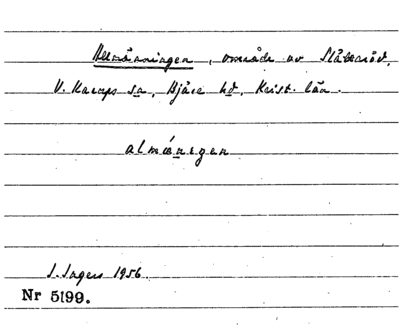 Allmänningen, område av Slåttaröd,
V. Karups sn, Bjäre hd, Krist. län.
almæ̲nɪgen
S. Ingers 1956
Nr 5199.